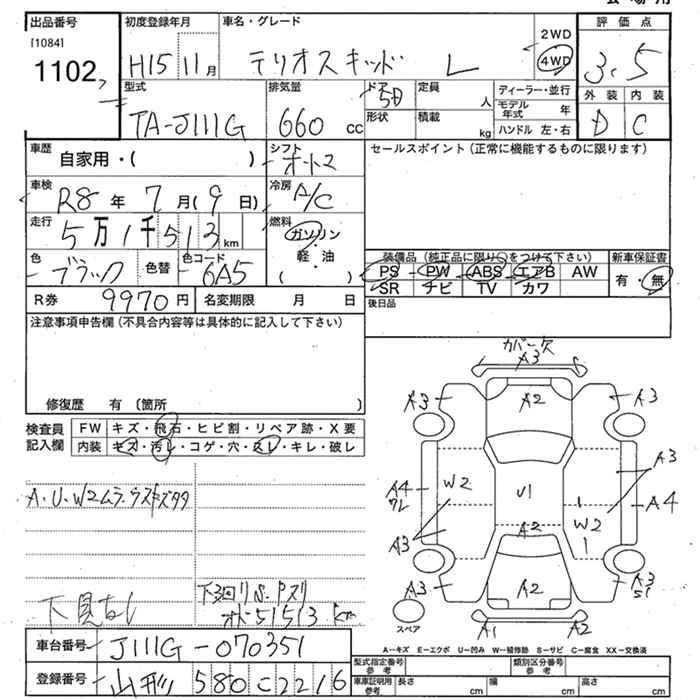 出品番号
[1084]
1102
初度登録年月
H15 11月
車名・グレード
テリオスキッド L
2WD
4WD
評価点
3.5
外装 内装
D C
型式
TA-J111G
排気量
660 cc
ドア
5
定員
人
形状
積載
kg
ディーラー・並行
モデル年式 年
ハンドル 左・右
車歴
自家用・( )
シフト
オートマ
セールスポイント(正常に機能するものに限ります)
車検
R8年 7月(9日)
冷房
A/C
走行
5万1千513km
燃料
ガソリン
・
軽・油
( )
色
ブラック
色替
色コード
6A5
装備品(純正品に限り○をつけて下さい)
PS PW ABS エアB AW
SR ナビ TV カワ
新車保証書
有・無
R券 9970円
名変期限 月 日
後日品
注意事項申告欄(不具合内容等は具体的に記入して下さい)
修復歴 有(箇所 )
検査員
記入欄
FW キズ・飛石・ヒビ割・リペア跡・X要
内装 キズ・汚レ・コゲ・穴・スレ・キレ・破レ
A・U・W2ムラ・ウスキズタタ
下廻りS・Pズリ
オド51513km
下見なし
カバー欠
A3
A3
A2
A3
A4
ワレ
W2
U1
W2
A3
A4
A3
A2
A3
A2
A3
S1
スペア
A1
A2
A−キズ E−エクボ U−凹み W−補修跡 S−サビ C−腐食 XX−交換済
車台番号
J111G-070351
登録番号
山形 580 C 2216
型式指定番号
参考
類別区分番号
参考
車車証明用
参考
長さ cm
幅 cm
高さ cm